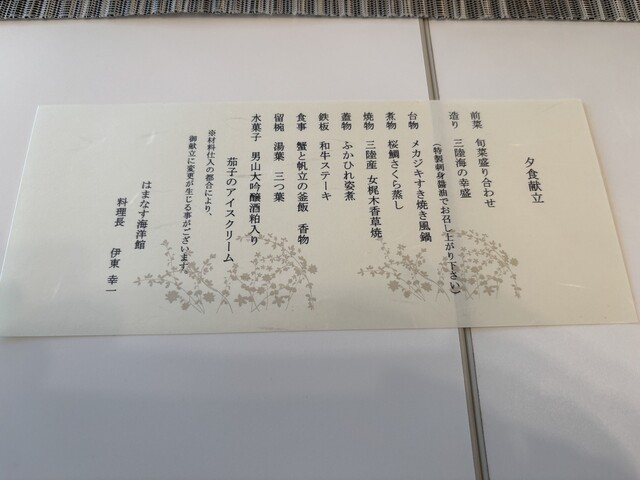 夕食献立
前菜 旬菜盛り合わせ
造り 三陸海の幸盛
(特製刺身醤油でお召し上がり下さい)
台物 メカジキすき焼き風鍋
煮物 桜鯛さくら蒸し
焼物 三陸産 女梶木香草焼
蓋物 ふかひれ姿煮
鉄板 和牛ステーキ
食事 蟹と帆立の釜飯 香物
留椀 湯葉 三つ葉
水菓子 男山大吟醸酒粕入り
茄子のアイスクリーム
※材料仕入の都合により、
御献立に変更が生じる事がございます。
はまなす海洋館
料理長 伊東 幸一